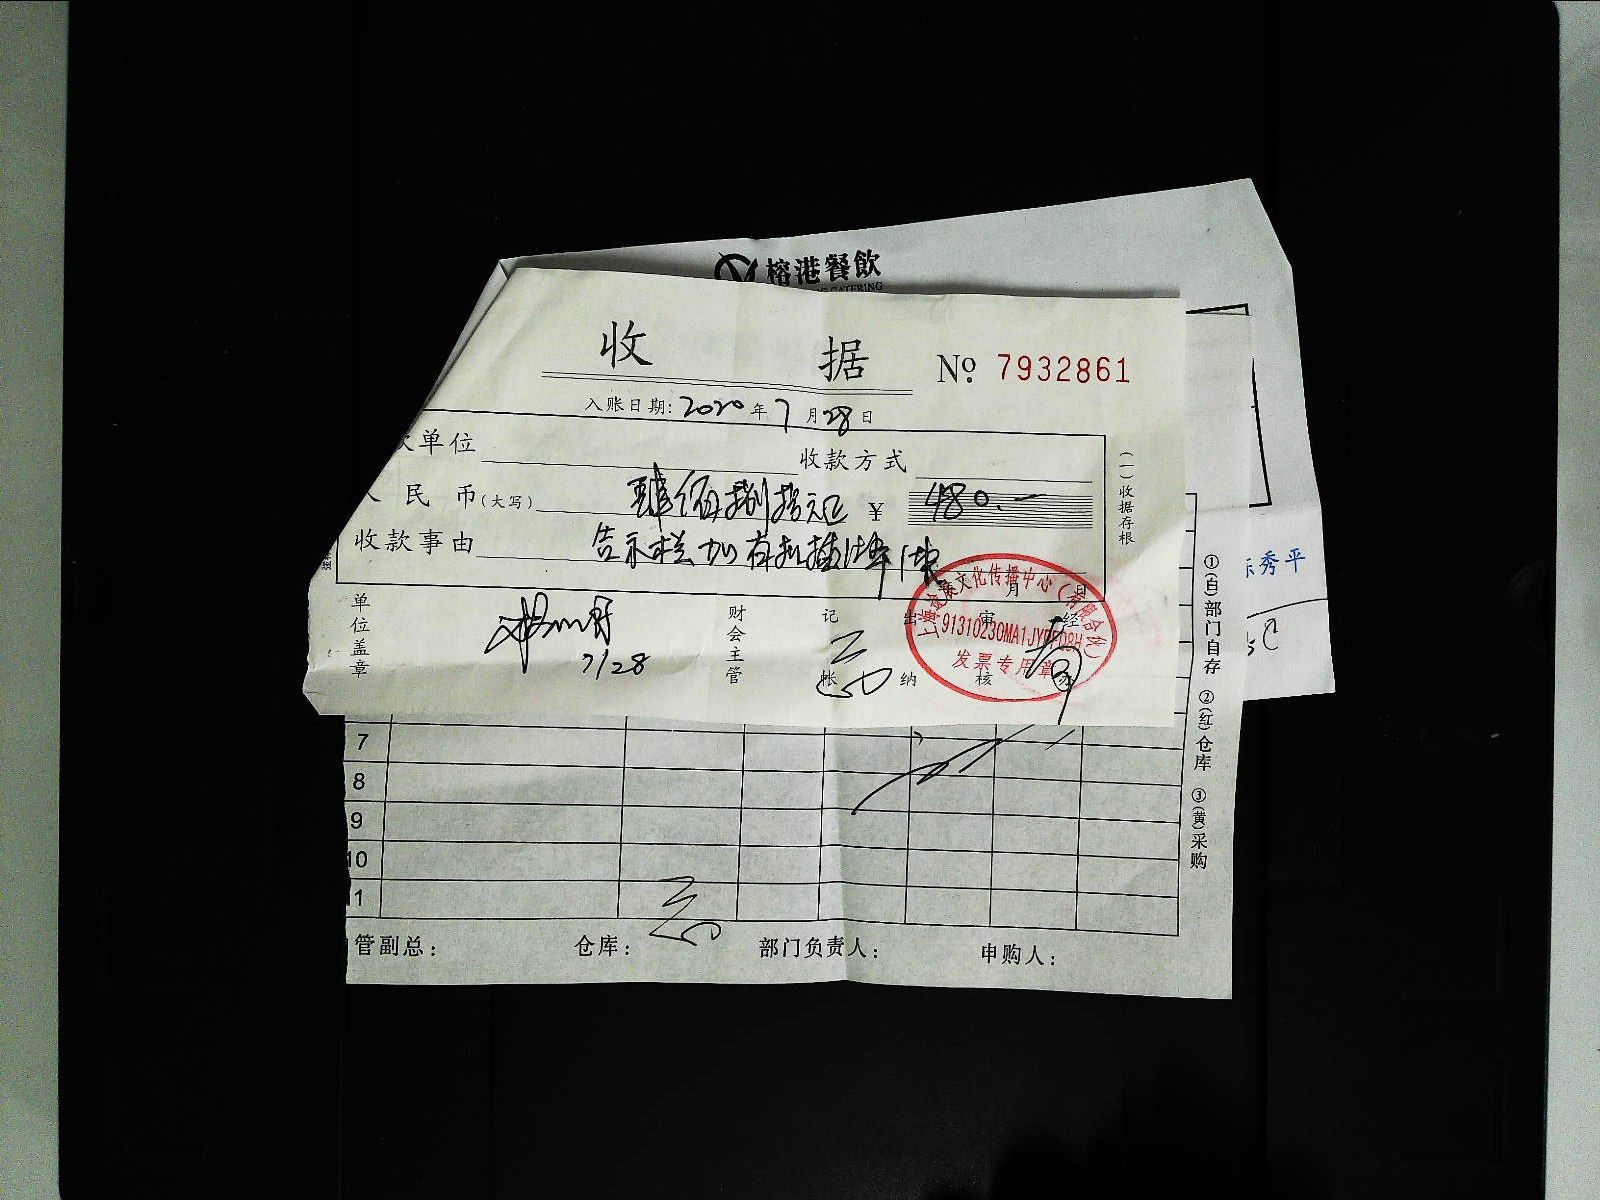 榕港餐飲
CATERING
收 据
№ 7932861
入账日期:2020年7月28日
单位
收款方式
民 币(大写) 肆佰捌拾元正 ¥ 480.—
收款事由 告示栏加
(一)收据存根
单位盖章
7/28
财会主管
记帐
出纳
审核
经办
月 日
文化传播中心(有限合伙)
发票专用章
秀平
①(自)部门自存 ②(红)仓库 ③(黄)采购
7
8
9
10
11
管副总:
仓库:
部门负责人:
申购人: